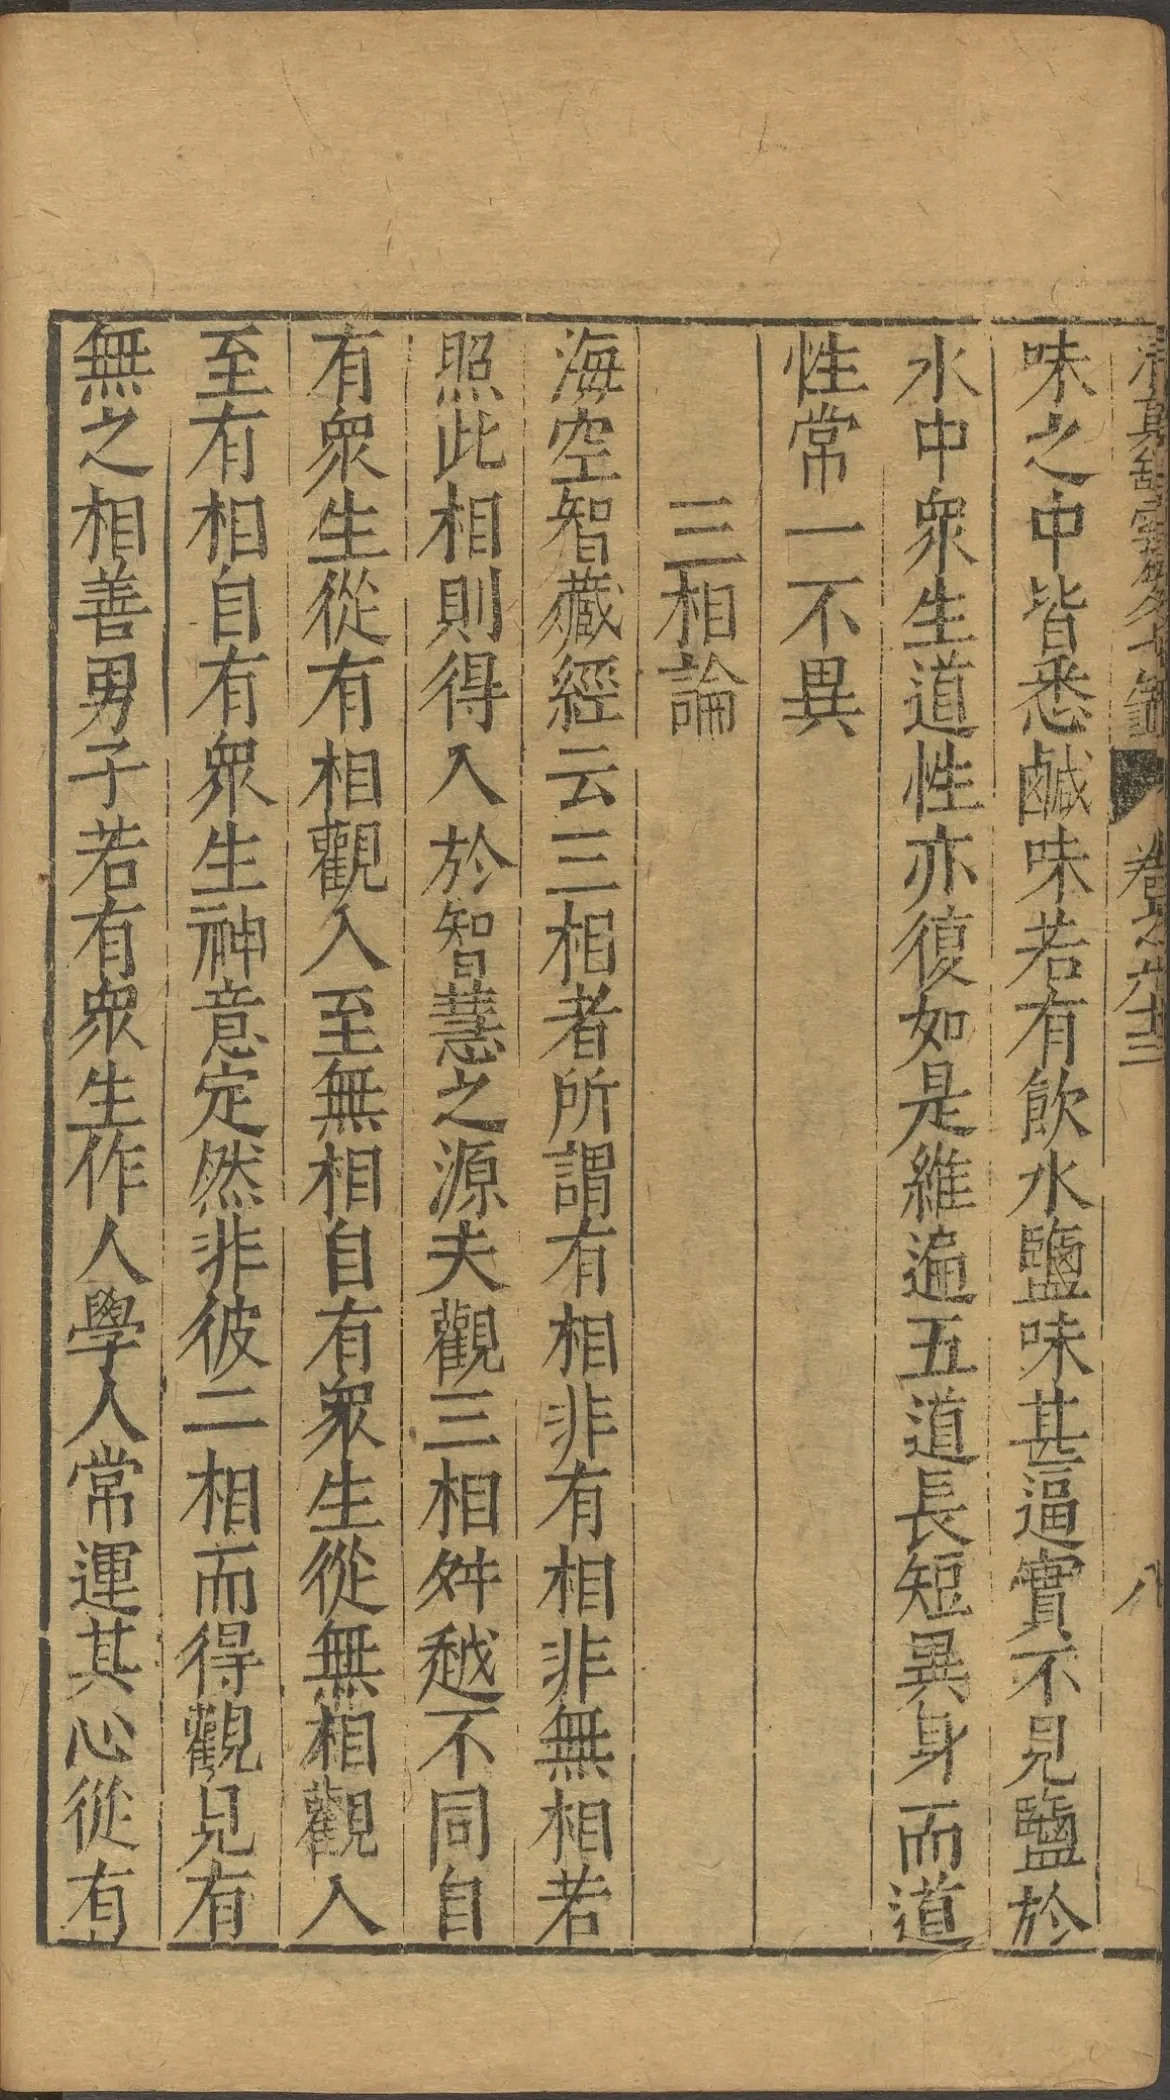 卷之六十三
八
味之中皆悉鹹味若有飲水鹽味甚逼實不見鹽於
水中衆生道性亦復如是維遍五道長短異身而道
性常一不異
三相論
海空智藏經云三相者所謂有相非有相非無相若
照此相則得入於智慧之源夫觀三相舛越不同自
有衆生從有相觀入至無相自有衆生從無相觀入
至有相自有衆生神意定然非彼二相而得觀見有
無之相善男子若有衆生作人學人常運其心從有